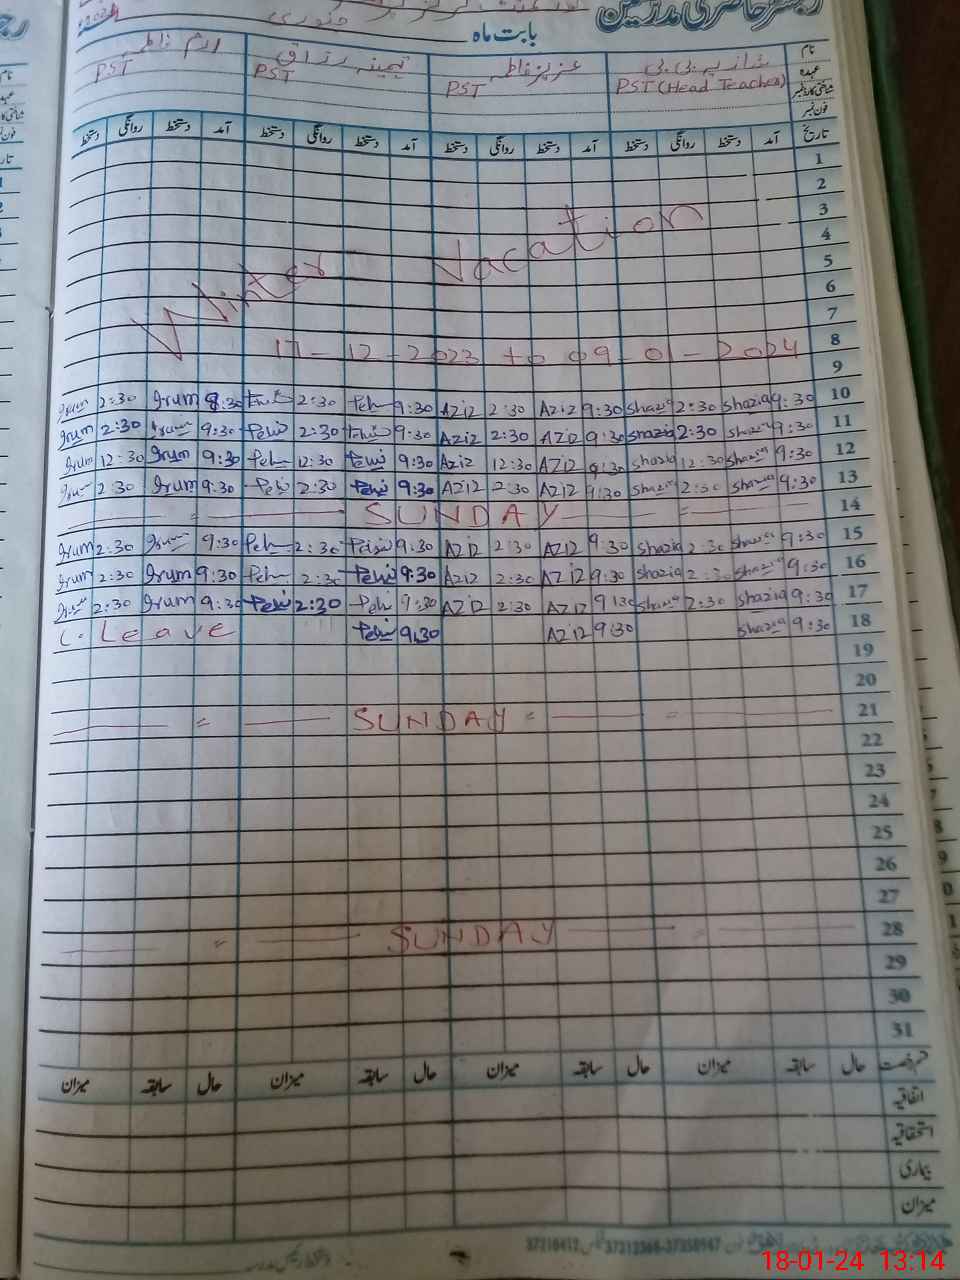 رجسٹر حاضری مدرسین
بابت ماہ جنوری
نام شازیہ بی بی عزیز فاطمہ تہمینہ رزاق ارم فاطمہ
عہدہ PST (Head Teacher) PST PST PST
شناختی کارڈ نمبر
فون نمبر
تاریخ آمد دستخط روانگی دستخط آمد دستخط روانگی دستخط آمد دستخط روانگی دستخط آمد دستخط روانگی دستخط
1
2
3
4
5
6
7
8
9
Winter Vacation
17-12-2023 to 09-01-2024
Irum 2:30 Irum 9:30 2:30 9:30 Aziz 2:30 Aziz 9:30 Shazia 2:30 Shazia 9:30 10
Irum 2:30 Irum 9:30 2:30 9:30 Aziz 2:30 Aziz 9:30 Shazia 2:30 Shazia 9:30 11
Irum 12:30 Irum 9:30 12:30 9:30 Aziz 12:30 Aziz 9:30 Shazia 12:30 Shazia 9:30 12
Irum 2:30 Irum 9:30 2:30 9:30 Aziz 2:30 Aziz 9:30 Shazia 2:30 Shazia 9:30 13
SUNDAY 14
Irum 2:30 Irum 9:30 2:30 9:30 Aziz 2:30 Aziz 9:30 Shazia 2:30 Shazia 9:30 15
Irum 2:30 Irum 9:30 2:30 9:30 Aziz 2:30 Aziz 9:30 Shazia 2:30 Shazia 9:30 16
Irum 2:30 Irum 9:30 2:30 9:30 Aziz 2:30 Aziz 9:30 Shazia 2:30 Shazia 9:30 17
C. Leave 9:30 Aziz 9:30 Shazia 9:30 18
19
20
SUNDAY 21
22
23
24
25
26
27
SUNDAY 28
29
30
31
قسم رخصت حال سابقہ میزان حال سابقہ میزان حال سابقہ میزان حال سابقہ میزان
اتفاقیہ
استحقاقیہ
بیماری
میزان
18-01-24 13:14